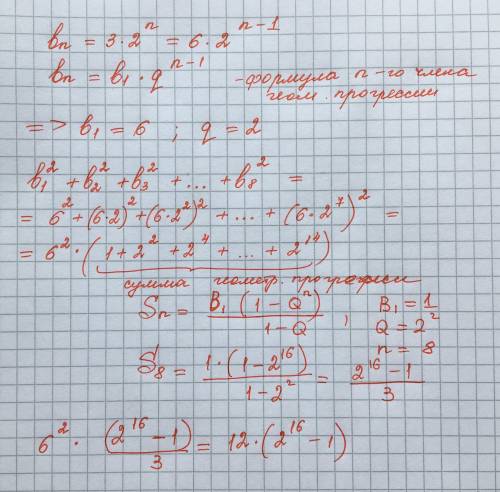 bₙ = 3·2ⁿ = 6·2ⁿ⁻¹
bₙ = b₁·qⁿ⁻¹ - формула n-го члена геом. прогрессии
=> b₁ = 6 ; q = 2
b₁² + b₂² + b₃² + ... + b₈² =
= 6² + (6·2)² + (6·2²)² + ... + (6·2⁷)² =
= 6²·(1 + 2² + 2⁴ + ... + 2¹⁴)
сумма геометр. прогрессии
Sₙ = B₁(1 - Qⁿ)/(1 - Q) ; B₁ = 1
Q = 2²
n = 8
S₈ = 1·(1 - 2¹⁶)/(1 - 2²) = (2¹⁶ - 1)/3
6²·(2¹⁶ - 1)/3 = 12·(2¹⁶ - 1)